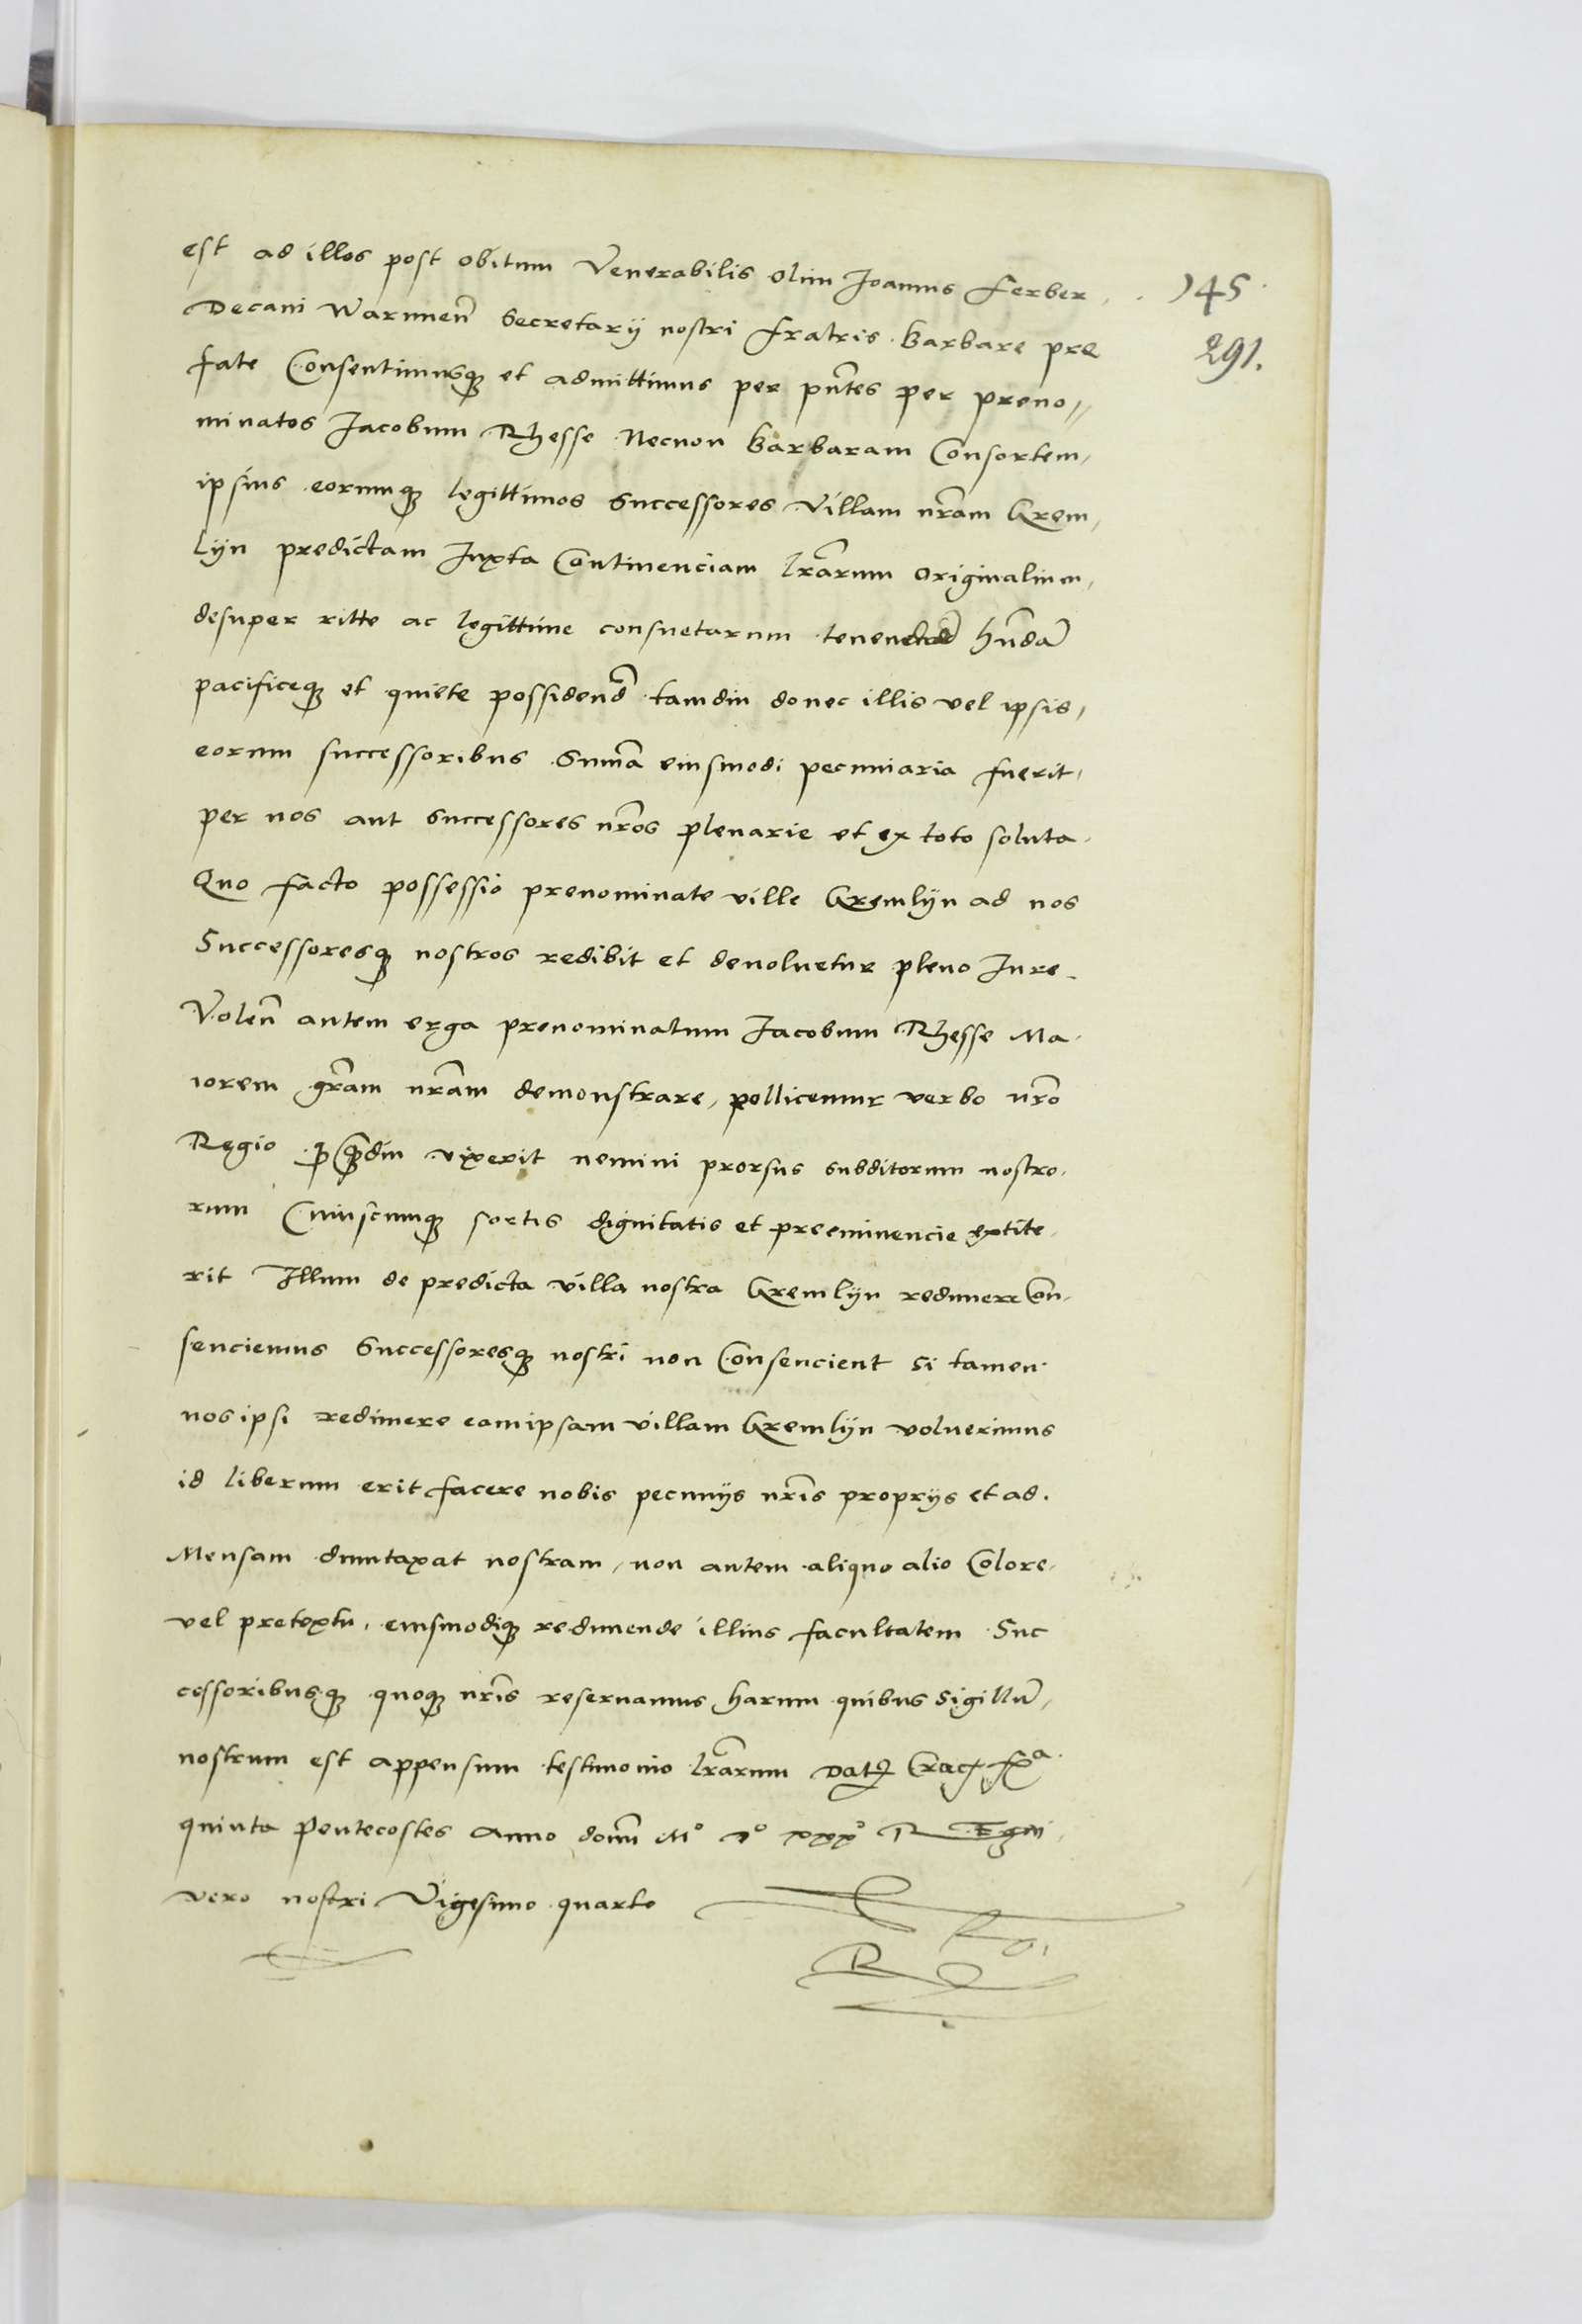 est ad illos post obitum Venerabilis olim Joannis Ferber
145
Decani Warmien̄ Secretarij nostri fratris Barbare pre
291.
fate Consentimusq3 et admittimus per pn̄tes per preno//
minatos Jacobum Rhesse Necnon Barbaram Consortem
ipsius eorumq3 legittimos Successores Villam nr̄am Grem
lijn predictam Juxta Continenciam lr̄arum originalium
desuper ritte ac legittime consuetarum hn̄da͂
pacificeq3 et quiete possidend̄ tamdiu donec illis vel ipsis
eorum successoribus Sum̄a eiusmodi pecuniaria fuerit
per nos aut Successores nr̄os plenarie et ex toto soluta.
Quo facto possessio prenominate ville Gremlijn ad nos
Successoresq3 nostros redibit et deuoluetur pleno Jure.
Volen̄ autem erga prenominatum Jacobum Rhesse Ma
iorem gr̄am nr̄am demonstrare, pollicemur verbo nr̄o
Regio vixerit nemini prorsus subditorum nostro
rum Cuiuscumq3 sortis dignitatis et preeminencie extite
rit Illum de predicta villa nostra Gremlijn redimere Con
senciemus Successoresq3 nostri non Consencient si tamen
nos ipsi redimere eamipsam villam Gremlijn voluerimus
id liberum erit facere nobis pecunijs nr̄is proprijs et ad
Mensam dumtaxat nostram, non autem aliquo alio Colore
vel pretextu, eiusmodiq3 redimende illius facultatem Suc
cessoribusq3 quoq3 nr̄is reseruamus harum quibus Sigillu͂
nostrum est appensum testimonio lr̄arum Dat Crac fr̄a
quinta Pentecostes Anno domī Mº dº xxxº Regni
vero nostri Vigesimo quarto